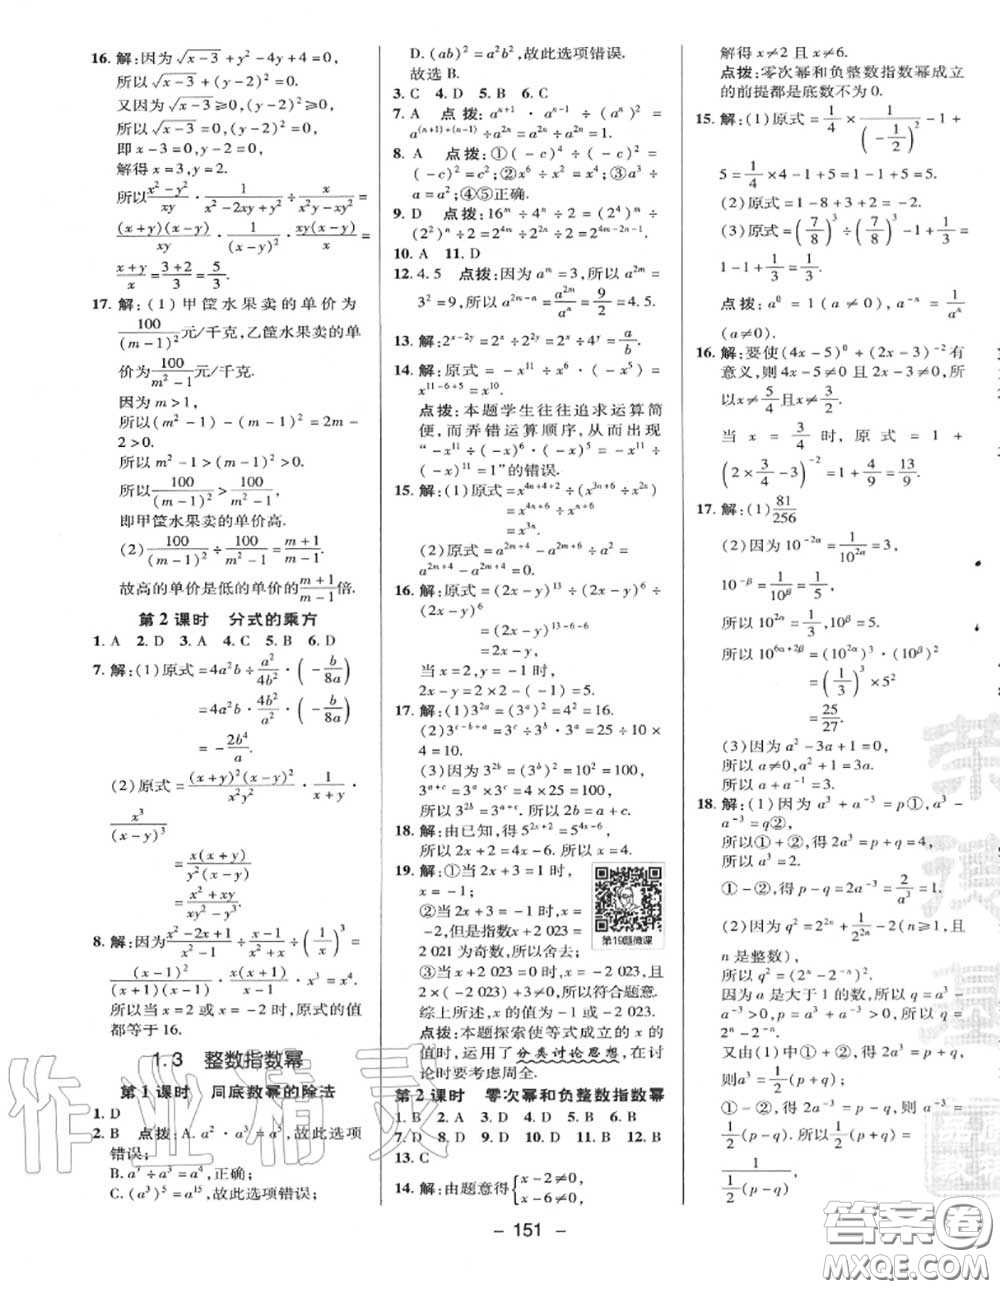 16. 解:因为√(x-3)+y²-4y+4=0,
所以√(x-3)+(y-2)²=0.
又因为√(x-3)⩾0,(y-2)²⩾0,
所以√(x-3)=0,(y-2)²=0.
即x-3=0,y-2=0.
解得x=3,y=2.
所以(x²-y²)/xy·1/(x²-2xy+y²)÷x/(x²y-xy²)=
(x+y)(x-y)/xy·1/(x-y)²·xy(x-y)/x=
(x+y)/x=(3+2)/3=5/3.
17. 解:(1)甲筐水果卖的单价为
100/(m-1)²元/千克,乙筐水果卖的单
价为100/(m²-1)元/千克.
因为m>1,
所以(m²-1)-(m-1)²=2m-2
>0.
所以m²-1>(m-1)²>0.
所以100/(m-1)²>100/(m²-1).
即甲筐水果卖的单价高.
(2)100/(m-1)²÷100/(m²-1)=(m+1)/(m-1).
故高的单价是低的单价的(m+1)/(m-1)倍.
第2课时 分式的乘方
1. A 2. D 3. A 4. C 5. B 6. D
7. 解:(1)原式=4a²b÷a²/4b²·(-b/8a)
=4a²b·4b²/a²·(-b/8a)
=-2b⁴/a.
(2)原式=(x+y)²(x-y)²/x²y²·1/(x+y)·
x³/(x-y)³
=x(x+y)/y²(x-y)
=(x²+xy)/(xy²-y³).
8. 解:因为(x²-2x+1)/(x²-1)÷(x-1)/(x²+x)÷(1/x)³=
(x-1)²/(x+1)(x-1)·x(x+1)/(x-1)·x³=x⁴.
所以当x=2或x=-2时,原式的值
都等于16.
1.3 整数指数幂
第1课时 同底数幂的除法
1. D
2. B 点拨:A. a²·a³=a⁵,故此选项
错误;
B. a⁷÷a³=a⁴,正确;
C. (a³)⁵=a¹⁵,故此选项错误;
D. (ab)²=a²b²,故此选项错误.
故选B.
3. C 4. D 5. B 6. C
7. A 点拨:aⁿ⁺¹·aⁿ⁻¹÷(aⁿ)²=
a⁽ⁿ⁺¹⁾⁺⁽ⁿ⁻¹⁾÷a²ⁿ=a²ⁿ÷a²ⁿ=1.
8. A 点拨:①(-c)⁴÷(-c)²=
(-c)²=c²;②x⁶÷x²=x⁴;③a³÷
a=a²;④⑤正确.
9. D 点拨:16ᵐ÷4ⁿ÷2=(2⁴)ᵐ÷
(2²)ⁿ÷2=2⁴ᵐ÷2²ⁿ÷2=2⁴ᵐ⁻²ⁿ⁻¹.
10. A 11. D
12. 4.5 点拨:因为aᵐ=3,所以a²ᵐ=
3²=9,所以a²ᵐ⁻ⁿ=a²ᵐ/aⁿ=9/2=4.5.
13. 解:2ˣ⁻²ʸ=2ˣ÷2²ʸ=2ˣ÷4ʸ=a/b.
14. 解:原式=-x¹¹÷x⁶·(-x⁵)=
x¹¹⁻⁶⁺⁵=x¹⁰.
点拨:本题学生往往追求运算简
便,而弄错运算顺序,从而出现
“-x¹¹÷(-x)⁶·(-x)⁵=-x¹¹÷
(-x)¹¹=1”的错误.
15. 解:(1)原式=x⁴ⁿ⁺⁴⁺²÷(x³ⁿ⁺⁶÷x²ⁿ)
=x⁴ⁿ⁺⁶÷xⁿ⁺⁶
=x³ⁿ.
(2)原式=a²ᵐ⁺⁴-a²ᵐ⁺⁶÷a²=
a²ᵐ⁺⁴-a²ᵐ⁺⁴=0.
16. 解:原式=(2x-y)¹³÷(2x-y)⁶÷
(2x-y)⁶
=(2x-y)¹³⁻⁶⁻⁶
=2x-y,
当x=2,y=-1时,
2x-y=2×2-(-1)=5.
17. 解:(1)3²ᵃ=(3ᵃ)²=4²=16.
(2)3ᶜ⁻ᵇ⁺ᵃ=3ᶜ÷3ᵇ·3ᵃ=25÷10×
4=10.
(3)因为3²ᵇ=(3ᵇ)²=10²=100,
3ᵃ⁺ᶜ=3ᵃ×3ᶜ=4×25=100,
所以3²ᵇ=3ᵃ⁺ᶜ.所以2b=a+c.
18. 解:由已知,得5²ˣ⁺²=5⁴ˣ⁻⁶,
所以2x+2=4x-6.所以x=4.
19. 解:①当2x+3=1时,
x=-1;
②当2x+3=-1时,x=
-2,但是指数x+2 023=
2 021为奇数,所以舍去;
③当x+2 023=0时,x=-2 023,且
2×(-2 023)+3≠0,所以符合题意.
综上所述,x的值为-1或-2 023.
点拨:本题探索使等式成立的x的
值时,运用了分类讨论思想,在讨
论时要考虑周全.
第19题微课
第2课时 零次幂和负整数指数幂
1. B 2. A 3. D 4. D 5. D 6. B
7. D 8. D 9. D 10. D 11. B 12. B
13. C
14. 解:由题意得{x-2≠0,
x-6≠0,
解得x≠2且x≠6.
点拨:零次幂和负整数指数幂成立
的前提都是底数不为0.
15. 解:(1)原式=1/4×1/(-1/2)²-1+
5=1/4×4-1+5=1-1+5=5.
(2)原式=1-8+3+2=-2.
(3)原式=(7/8)³÷(7/8)³-1+1/3=
1-1+1/3=1/3.
点拨:a⁰=1(a≠0),a⁻ⁿ=1/aⁿ
(a≠0).
16. 解:要使(4x-5)⁰+(2x-3)⁻²有
意义,则4x-5≠0且2x-3≠0,所
以x≠5/4且x≠3/2.
当x=3/4时,原式=1+
(2×3/4-3)⁻²=1+4/9=13/9.
17. 解:(1)81/256
(2)因为10⁻²ᵅ=1/10²ᵅ=3,
10⁻ᵝ=1/10ᵝ=1/5,
所以10²ᵅ=1/3,10ᵝ=5.
所以10⁶ᵅ⁺²ᵝ=(10²ᵅ)³·(10ᵝ)²
=(1/3)³×5²
=25/27.
(3)因为a²-3a+1=0,
所以a≠0,a²+1=3a.
所以a+a⁻¹=3.
18. 解:(1)因为a³+a⁻³=p①,a³-
a⁻³=q②,
所以①+②,得2a³=p+q=4,
所以a³=2.
①-②,得p-q=2a⁻³=2/a³=1.
(2)因为q²=2²ⁿ+1/2²ⁿ-2(n⩾1,且
n是整数),
所以q²=(2ⁿ-2⁻ⁿ)².
因为a是大于1的数,所以q=a³-
a⁻³>0,所以q=2ⁿ-2⁻ⁿ.
又由(1)中①+②得2a³=p+q,
a³=1/2(p+q),
①-②得2a⁻³=p-q,则a⁻³=
1/2(p-q).所以p²-q²=4,p+q=
1/(1/2(p-q)).
- 151 -
作业精灵
答案卷
MXQE.COM